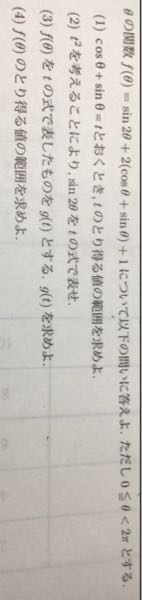 θの関数 f(θ) = sin 2θ + 2(cos θ + sin θ) + 1 について以下の問いに答えよ. ただし 0 ≦ θ < 2π とする.
(1) cos θ + sin θ = t とおくとき, t のとり得る値の範囲を求めよ.
(2) t² を考えることにより, sin 2θ を t の式で表せ.
(3) f(θ) を t の式で表したものを g(t) とする. g(t) を求めよ.
(4) f(θ) のとり得る値の範囲を求めよ.